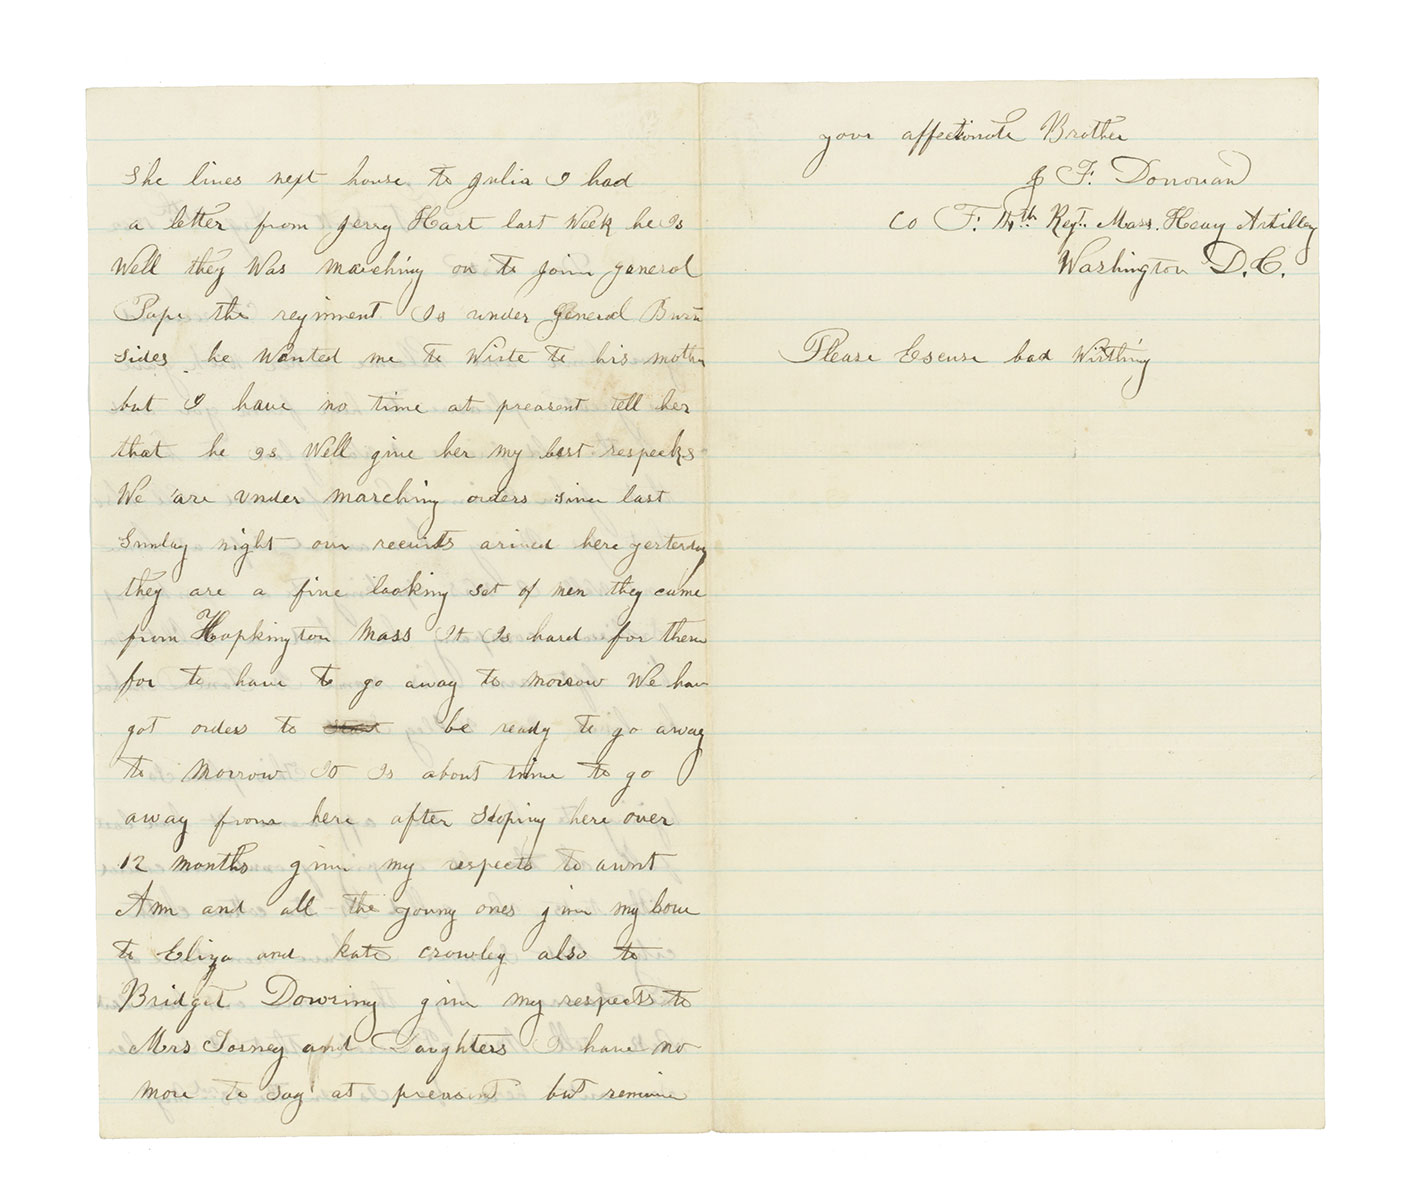 She lives next house to Julia I had
a letter from Jerry Hart last Week he Is
Well they Was marching on to join general
Pope the regiment Is under General Burn
sides he Wanted me to Wirte to his mother
but I have no time at preasent tell her
that he Is Well give her my best respecks
We are under marching orders since last
Sunday night our recuits arived here yesterday
they are a fine looking set of men they came
from Hopkington Mass It Is hard for them
for to have to go away to morrow We have
got orders to be ready to go away
to Morrow It Is about time to go
away from here after stoping here over
12 months give my respects to aunt
Ann and all the young ones give my love
to Eliza and kate crowley also to
Bridget Dowring give my respects to
Mrs Torney and Daughters I have no
more to say at preasent but remine
your affectionate Brother
J F. Donovan
Co F. 14th Regt. Mass. Heavy Artilley
Washington D.C.
Please Escuse bad Wirthing